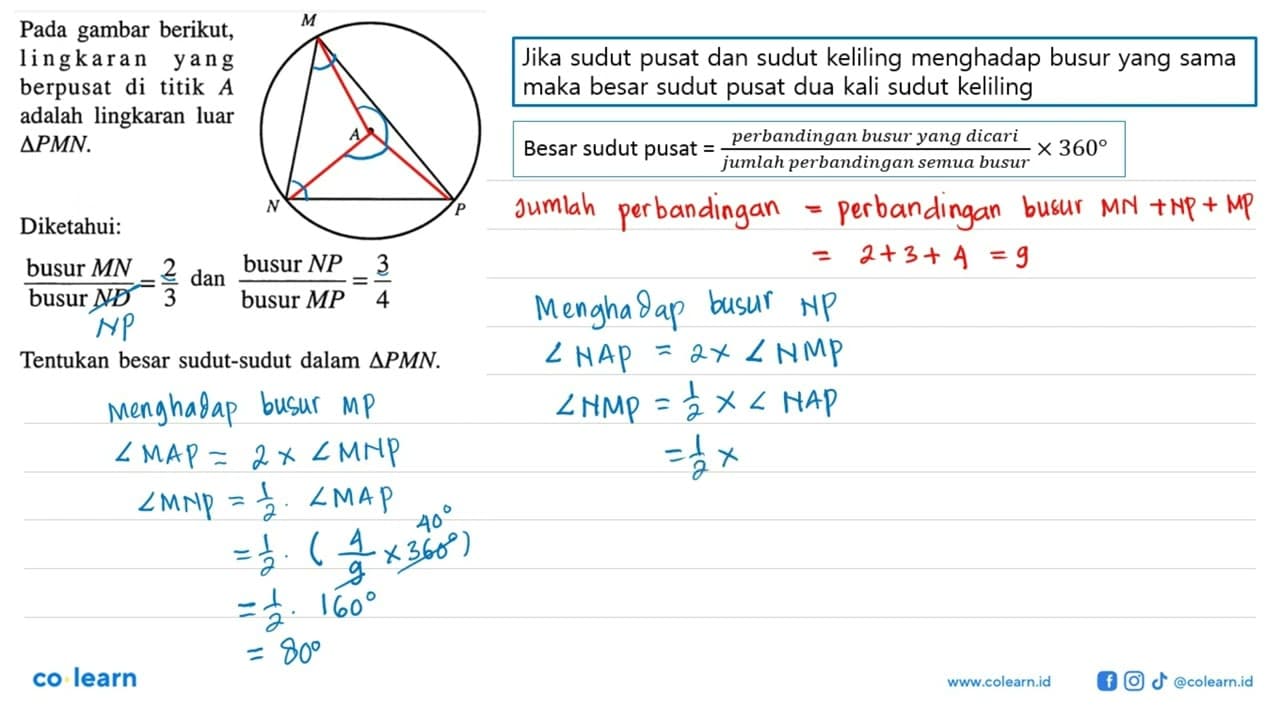 Pada gambar berikut,
lingkaran yang
berpusat di titik A
adalah lingkaran luar
ΔPMN.
M
A
N
P
Diketahui:
busur MN / busur ND = 2/3 dan busur NP / busur MP = 3/4
NP
Tentukan besar sudut-sudut dalam ΔPMN.
Menghadap busur MP
∠MAP = 2 × ∠MNP
∠MNP = 1/2 . ∠MAP
40°
= 1/2 . (4/9 × 360°)
= 1/2 . 160°
= 80°
Jika sudut pusat dan sudut keliling menghadap busur yang sama
maka besar sudut pusat dua kali sudut keliling
Besar sudut pusat = perbandingan busur yang dicari / jumlah perbandingan semua busur × 360°
Jumlah perbandingan = perbandingan busur MN + NP + MP
= 2 + 3 + 4 = 9
Menghadap busur NP
∠NAP = 2 × ∠NMP
∠NMP = 1/2 × ∠NAP
= 1/2 ×
co learn
www.colearn.id
@colearn.id